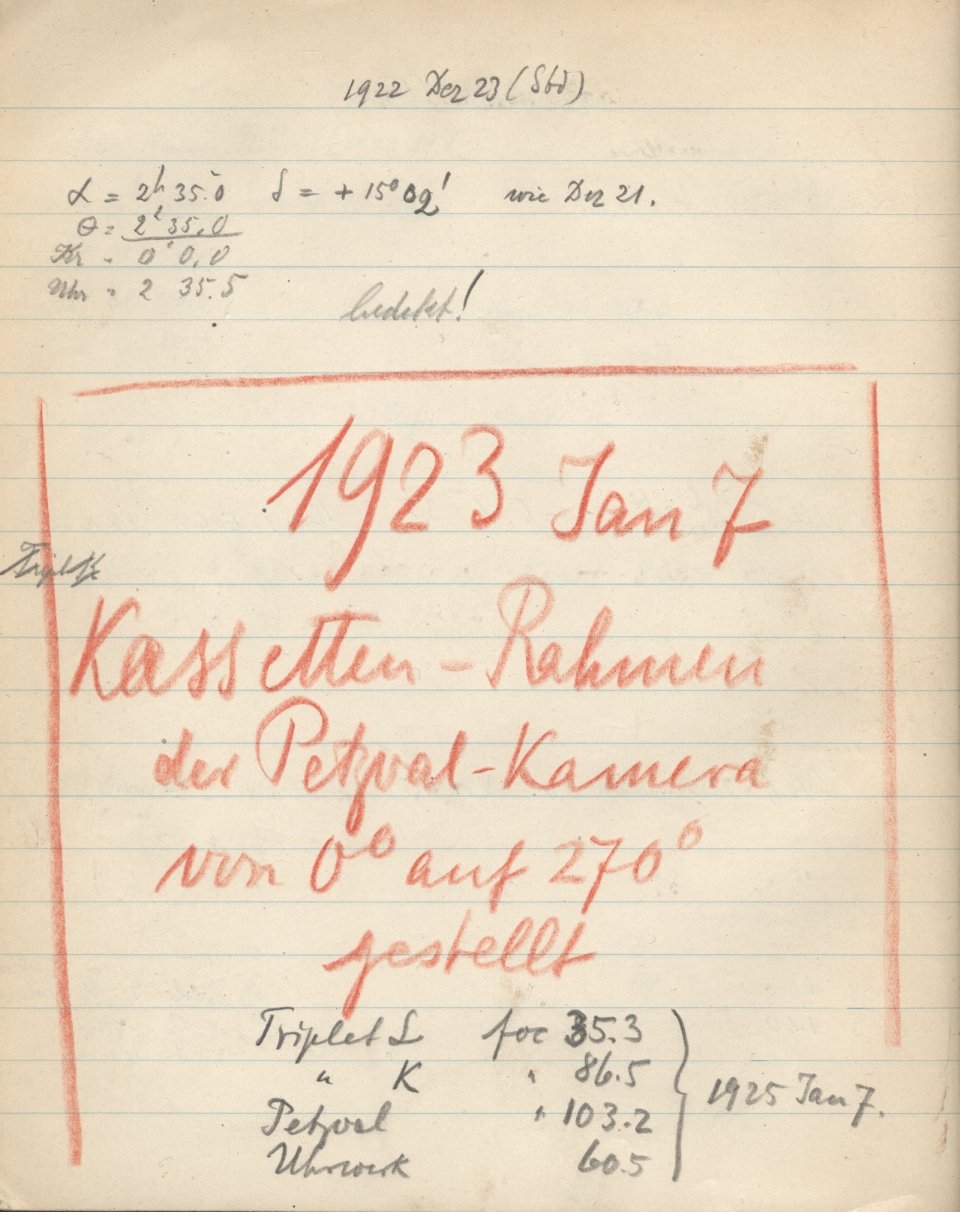 1922 Dez 23 (Sbd)
α = 2h 35.0 δ = + 15° 02' wie Dez 21.
θ = 2h 35.0
Kr = 0h 0.0
Uhr = 2 35.5
bedekt!
1923 Jan 7
Kassetten-Rahmen
der Petzval-Kamera
von 0° auf 270°
gestellt
Triplet L foc 35.3
" K " 86.5
Petzval " 103.2
Uhrwerk 60.5
1925 Jan 7.